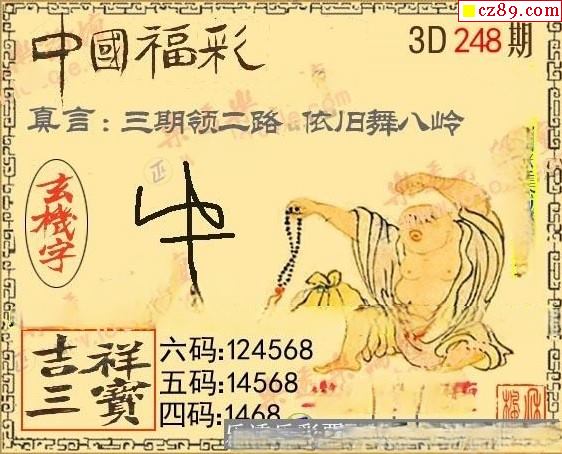 cz89.com
中國福彩
3D 248 期
真言：三期领二路 依旧舞八岭
玄機字
吉祥三寳
六码:124568
五码:14568
四码:1468